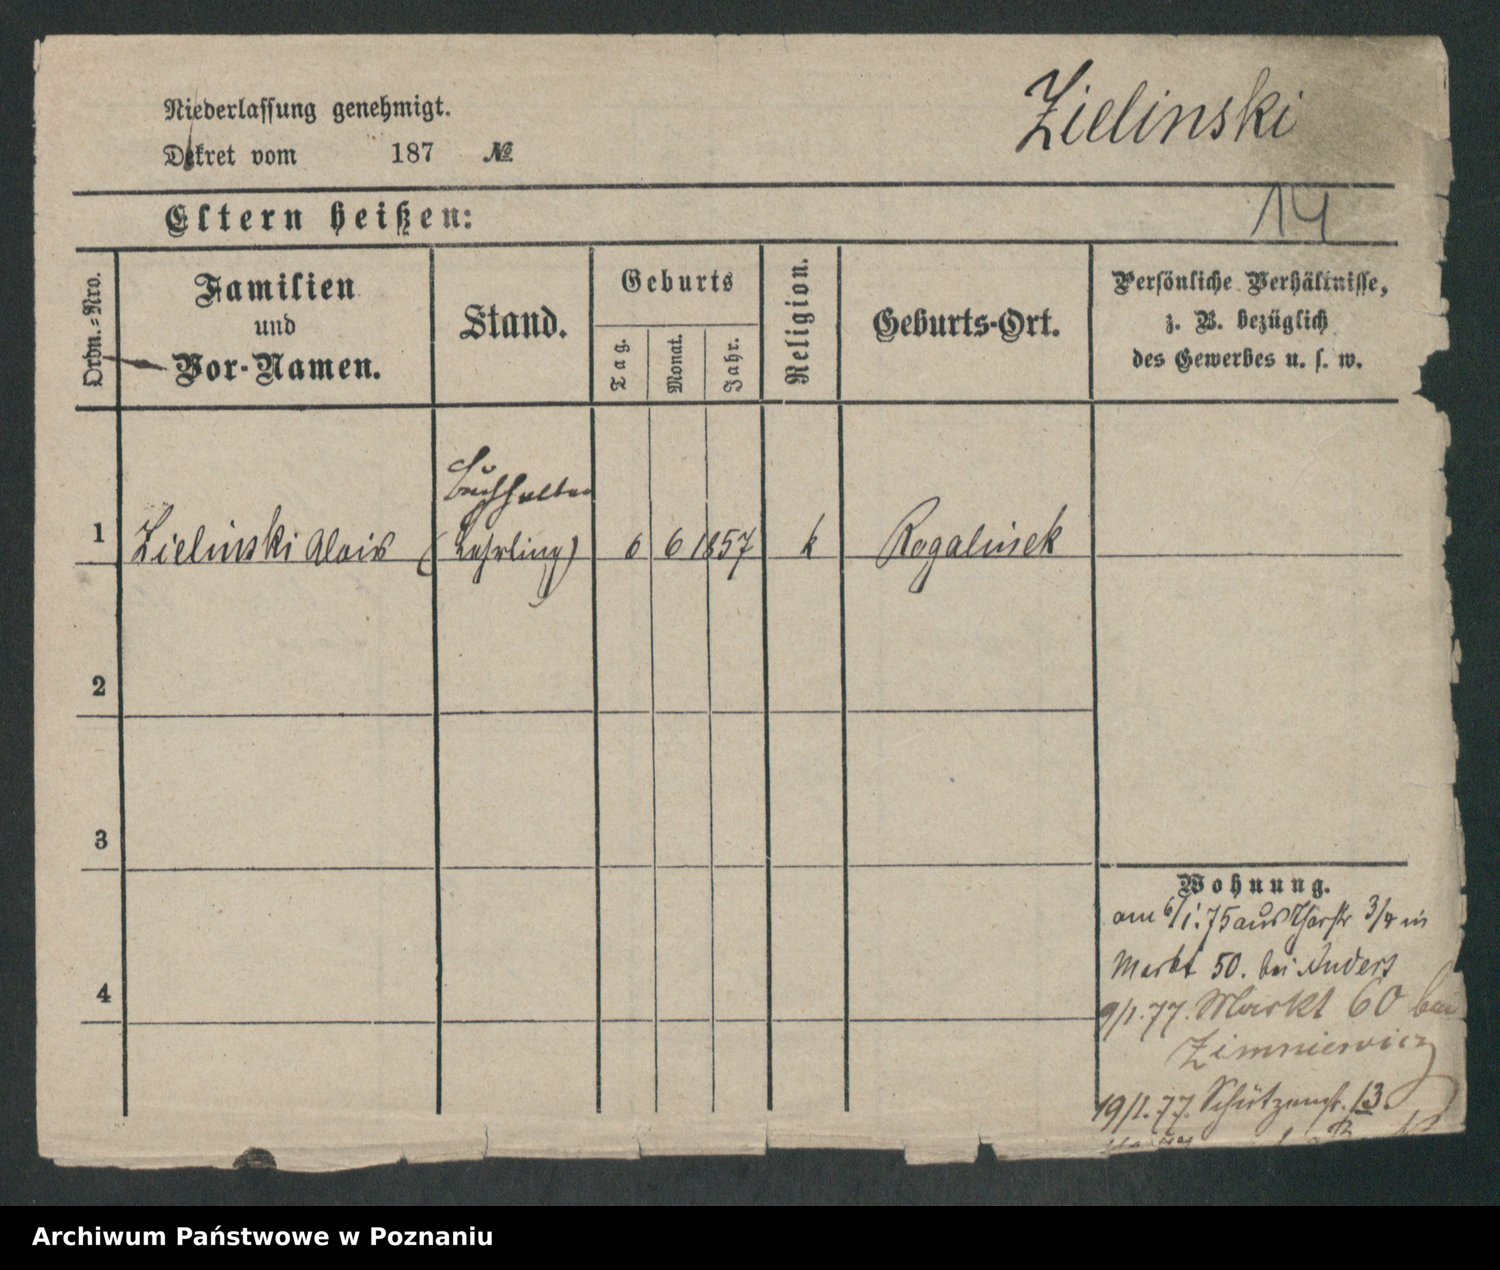 Zielinski
Niederlassung genehmigt.
Dekret vom 187 №
14
Eltern heißen:
Ordn.-Nro.
Familien
und
Vor-Namen.
Stand.
Geburts
Tag.
Monat.
Jahr.
Religion.
Geburts-Ort.
Persönliche Verhältnisse,
z. B. bezüglich
des Gewerbes u. s. w.
Buchhalter
1 Zielinski Alois (Lehrling) 6 6 1857 k Rogalinek
2
3
4
Wohnung.
am 6/1.75 aus 3/4 in
Markt 50. bei Anders
9/1.77. Markt 60 bei
Zimniewicz
19/1.77. Schützenstr. 13.
Archiwum Państwowe w Poznaniu